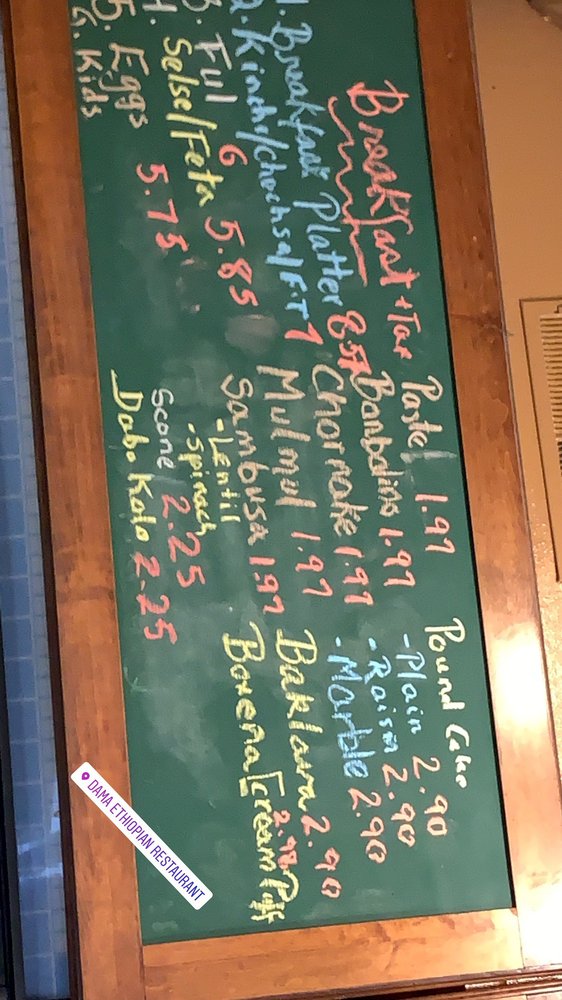 Breakfast + Tax
1. Breakfast Platter 8.57
2. Kinche/Chechsa/F.T 7
3. Ful 6
4. Selse/Feta 5.85
5. Eggs 5.75
6. Kids
Pastel 1.97
Bonbolino 1.97
Chornake 1.97
Mulmul 1.97
Sambusa 1.97
-Lentil
-Spinach
Scone 2.25
Dabo Kolo 2.25
Pound Cake
-Plain 2.90
-Raisin 2.90
-Marble 2.90
Baklava 2.90
Bonena [cream Puff]
2.90
DAMA ETHIOPIAN RESTAURANT